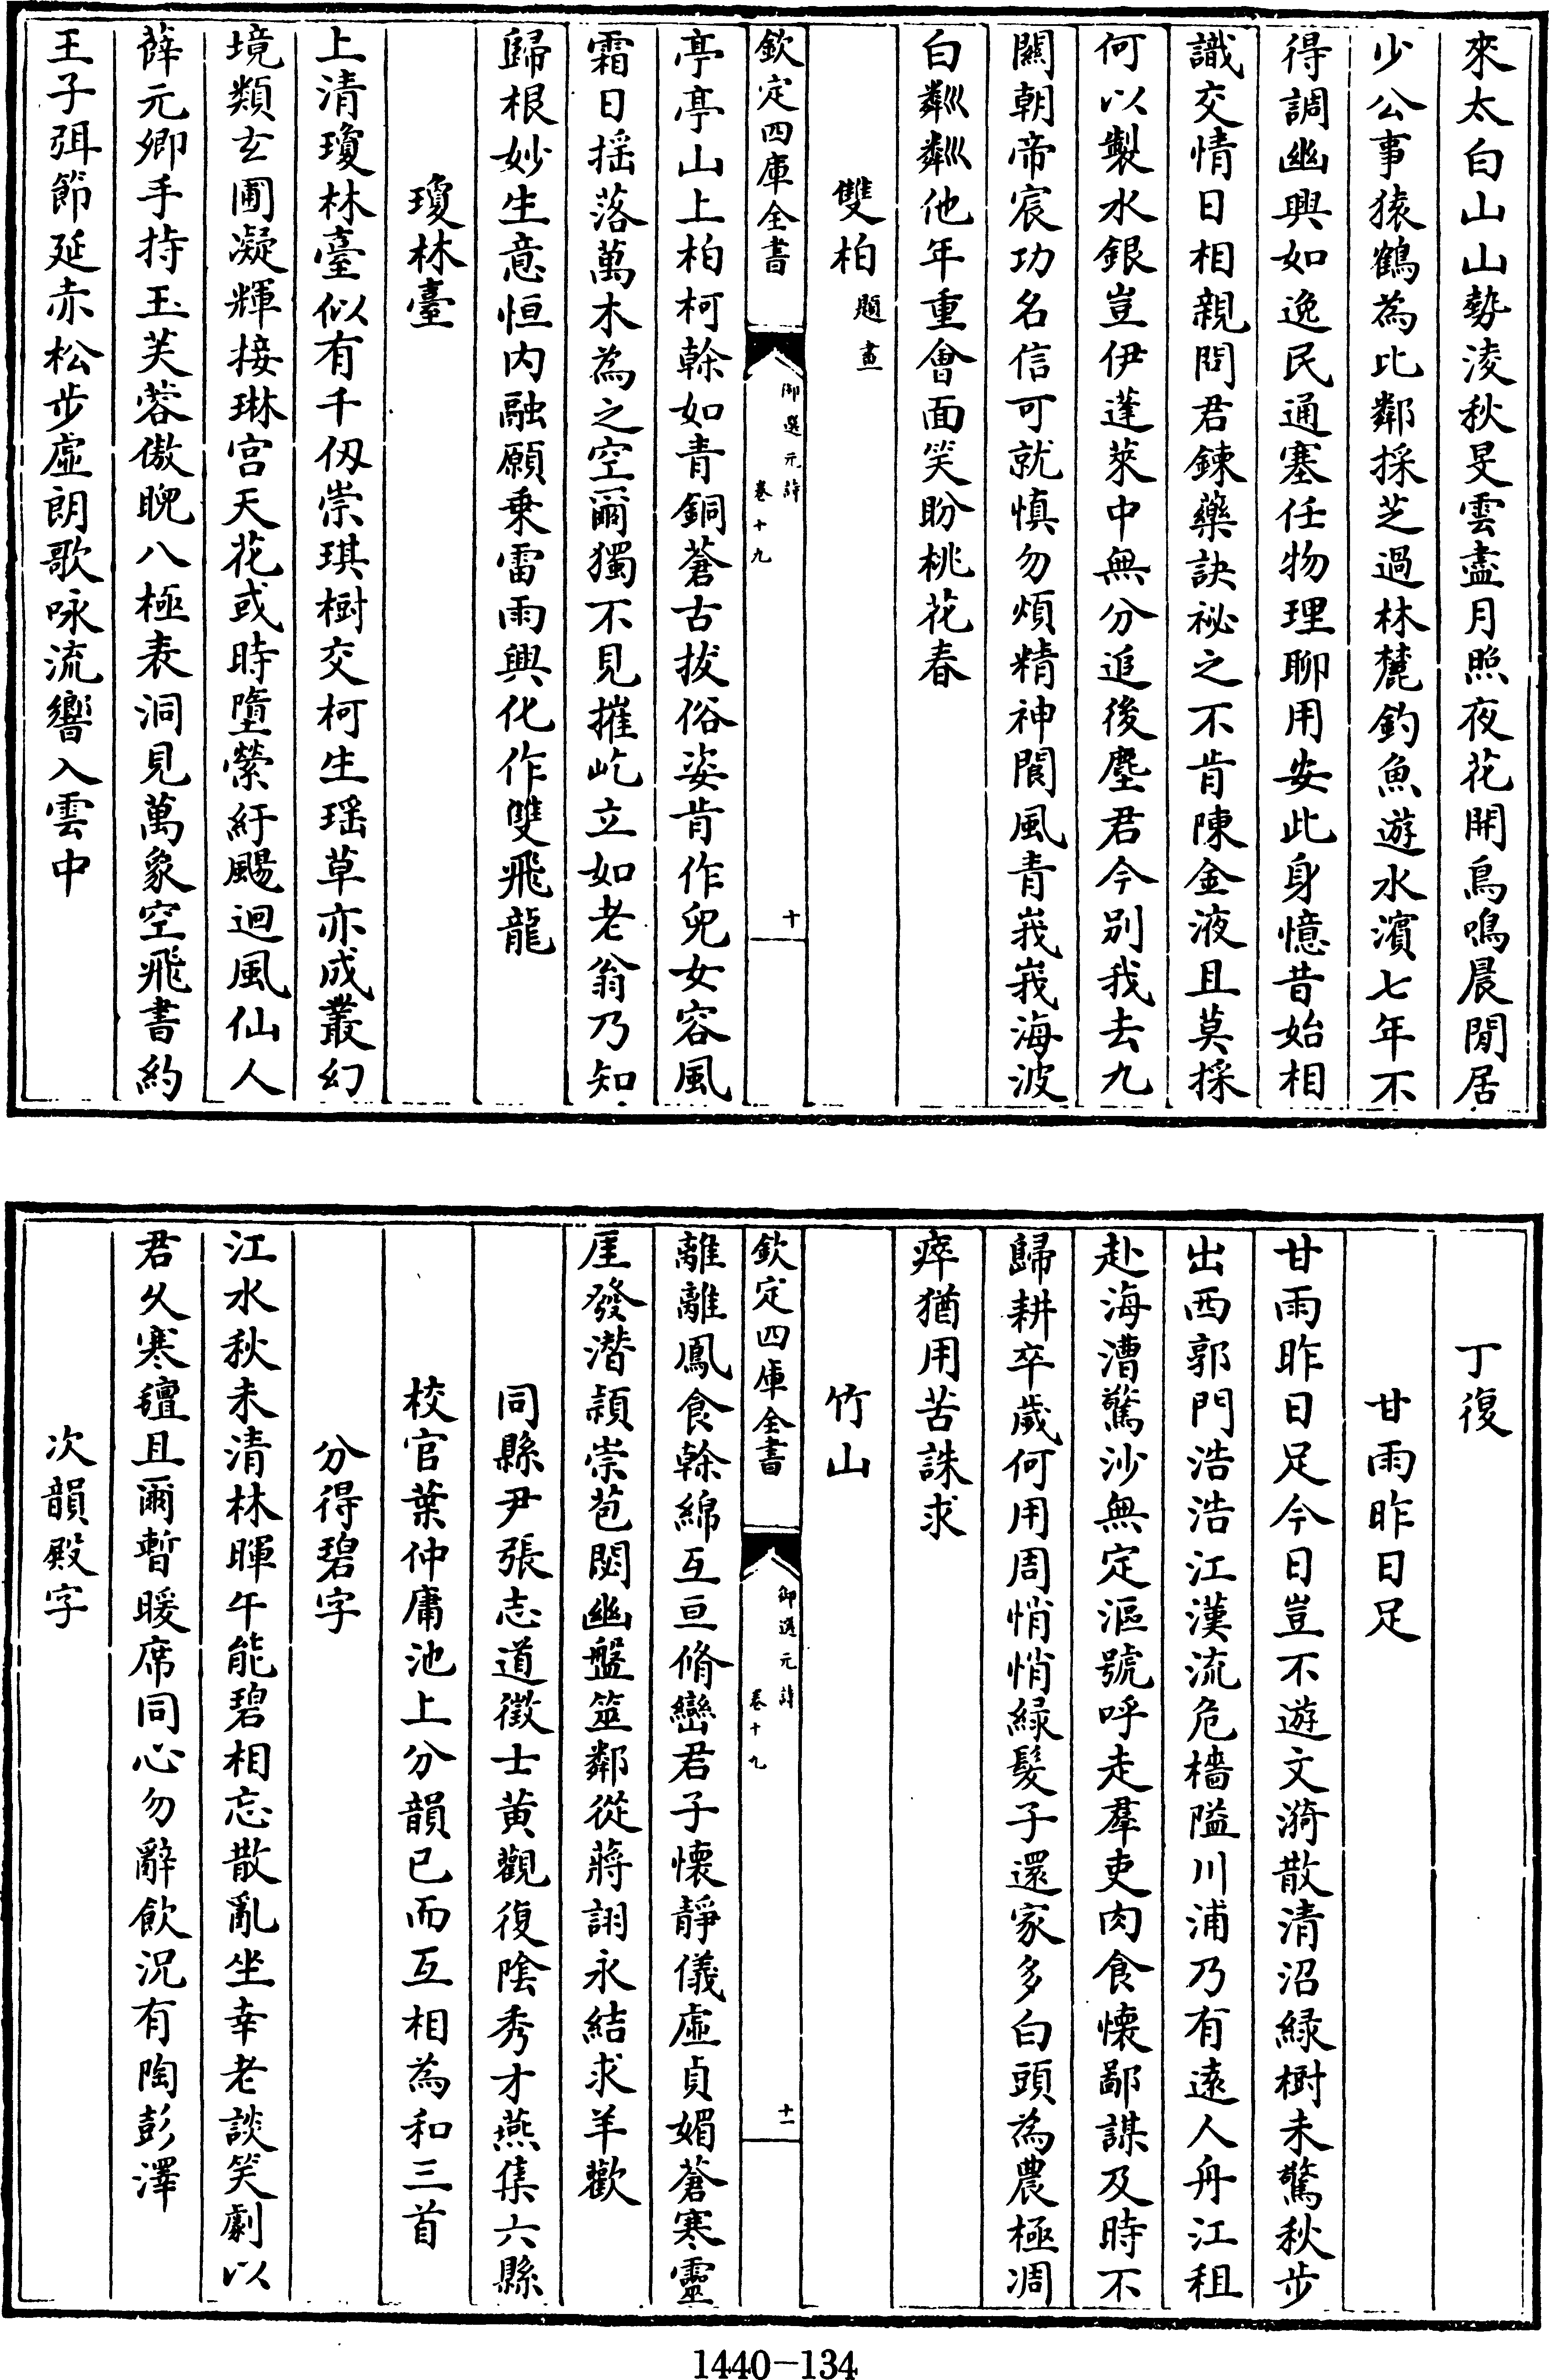 來太白山山勢淩秋旻雲盡月照夜花開鳥鳴晨閒居
少公事猿鶴為比鄰採芝過林麓釣魚遊水濱七年不
得調幽興如逸民通塞任物理聊用安此身憶昔始相
識交情日相親問君鍊藥訣祕之不肯陳金液且莫採
何以製水銀豈伊蓬萊中無分追後塵君今別我去九
關朝帝宸功名信可就慎勿煩精神閬風青峩峩海波
白粼粼他年重會面笑盼桃花春
雙柏題畫
欽定四庫全書
御選元詩
卷十九
十
亭亭山上柏柯榦如青銅蒼古拔俗姿肯作兒女容風
霜日揺落萬木為之空爾獨不見摧屹立如老翁乃知
歸根妙生意恒内融願乗雷雨興化作雙飛龍
瓊林臺
上清瓊林臺似有千仭崇琪樹交柯生瑶草亦成叢幻
境類玄圃凝輝接琳宫天花或時墮縈紆颺迴風仙人
薛元卿手持玉芙蓉傲睨八極表洞見萬象空飛書約
王子弭節延赤松步虛朗歌咏流響入雲中
丁復
甘雨昨日足
甘雨昨日足今日豈不遊文漪散清沼緑樹未驚秋步
出西郭門浩浩江漢流危檣隘川浦乃有逺人舟江租
赴海漕驚沙無定漚號呼走羣吏肉食懷鄙謀及時不
歸耕卒歲何用周悄悄緑髮子還家多白頭為農極凋
瘁猶用苦誅求
竹山
欽定四庫全書
御選元詩
卷十九
十一
離離鳳食榦綿互亘脩巒君子懷靜儀虛貞媚蒼寒靈
厓發潛穎崇苞閟幽盤筮鄰從蔣詡永結求羊歡
同縣尹張志道徵士黄觀復陰秀才燕集六縣
校官葉仲庸池上分韻已而互相為和三首
分得碧字
江水秋未清林暉午能碧相忘散亂坐幸老談笑劇以
君久寒氊且爾暫暖席同心勿辭飲況有陶彭澤
次韻殿字
1440-134